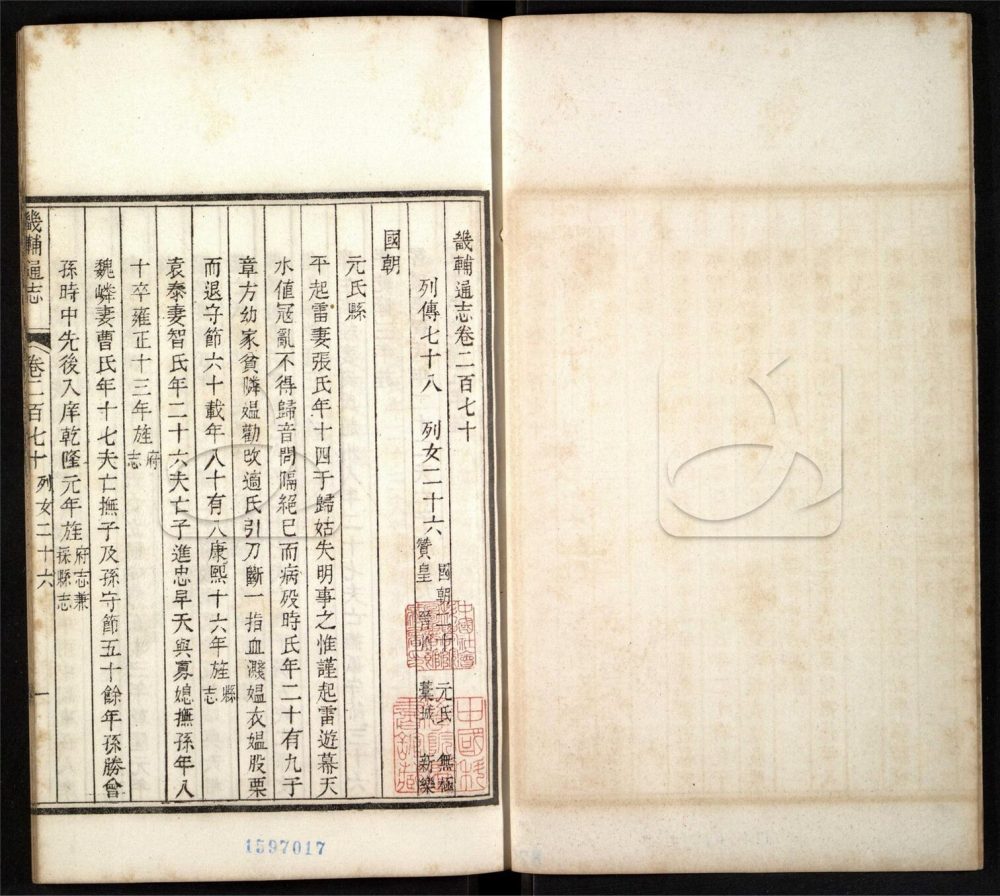 畿輔通志卷二百七十
列傳七十八 列女二十六 國朝二十 元氏 無極 贊皇 晉州 藁城 新樂
國朝
元氏縣
平起雷妻張氏年十四于歸姑失明事之惟謹起雷遊幕天
水值冦亂不得歸音問隔絕巳而病殁時氏年二十有九子
章方幼家貧隣媪勸改適氏引刀斷一指血濺媪衣媪股栗
而退守節六十載年八十有八康熙十六年旌縣志
袁泰妻智氏年二十六夫亡子進忠早夭與寡媳撫孫年八
十卒雍正十三年旌府志
魏嶙妻曹氏年十七夫亡撫子及孫守節五十餘年孫勝會
孫時中先後入庠乾隆元年旌府志兼採縣志
畿輔通志 卷二百七十 列女二十六 一
1597017